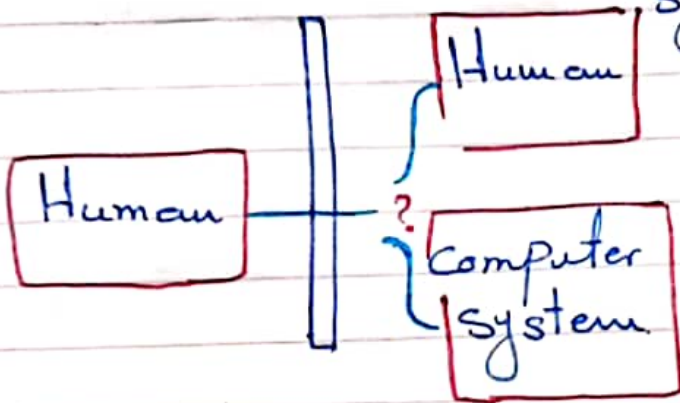 Human
Human
?
computer
system